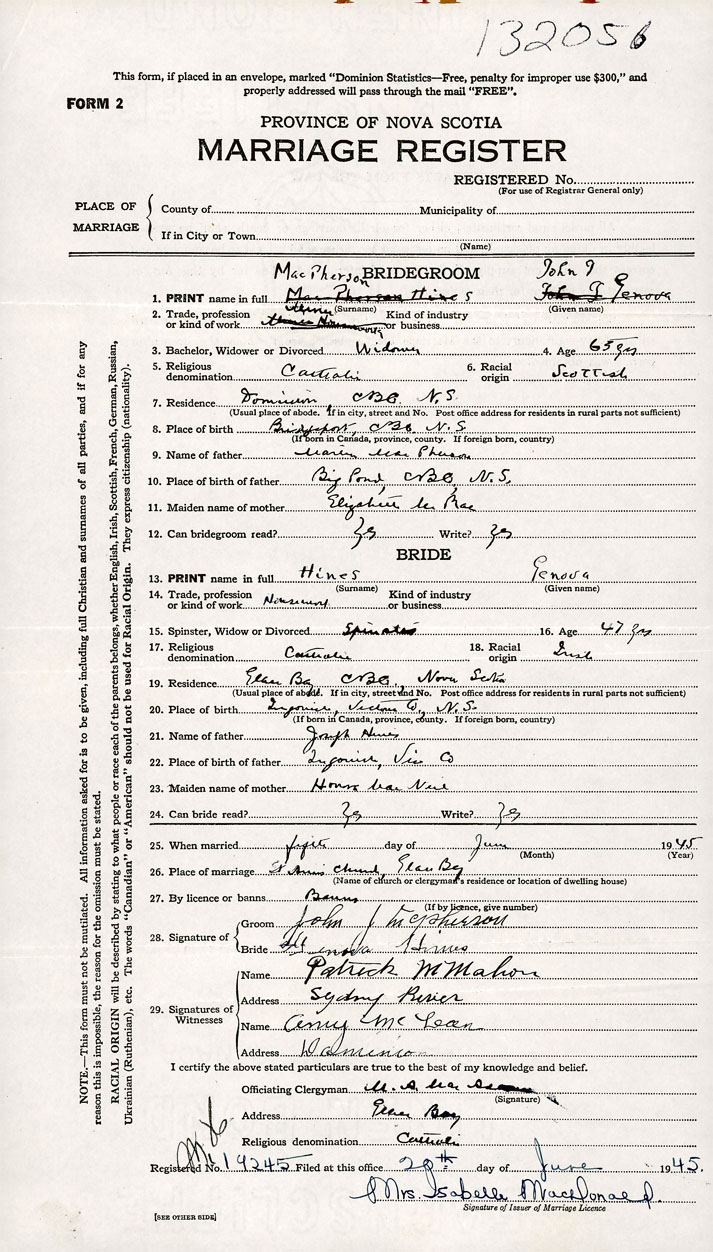 132056
This form, if placed in an envelope, marked "Dominion Statistics—Free, penalty for improper use $300," and
properly addressed will pass through the mail "FREE".
FORM 2
PROVINCE OF NOVA SCOTIA
MARRIAGE REGISTER
REGISTERED No.
(For use of Registrar General only)
PLACE OF MARRIAGE
County of Municipality of
If in City or Town
(Name)
MacPherson BRIDEGROOM John J
1. PRINT name in full MacPherson Hines John J Genova
(Surname) (Given name)
2. Trade, profession or kind of work Kind of industry or business
3. Bachelor, Widower or Divorced Widower 4. Age 65 yrs
5. Religious denomination Catholic 6. Racial origin Scottish
7. Residence Dominion, CBCo N.S.
(Usual place of abode. If in city, street and No. Post office address for residents in rural parts not sufficient)
8. Place of birth Bridgeport, CBCo N.S.
(If born in Canada, province, county. If foreign born, country)
9. Name of father Mac Pherson
10. Place of birth of father Big Pond, CBCo, N.S.
11. Maiden name of mother Elizabeth Mc Rae
12. Can bridegroom read? Yes Write? Yes
BRIDE
13. PRINT name in full Hines Genova
(Surname) (Given name)
14. Trade, profession or kind of work Housework Kind of industry or business
15. Spinster, Widow or Divorced Spinster 16. Age 47 yrs
17. Religious denomination Catholic 18. Racial origin Irish
19. Residence Glace Bay CBCo, Nova Scotia
(Usual place of abode. If in city, street and No. Post office address for residents in rural parts not sufficient)
20. Place of birth Ingonish, Victoria Co, N.S.
(If born in Canada, province, county. If foreign born, country)
21. Name of father Joseph Hines
22. Place of birth of father Ingonish, Vic Co
23. Maiden name of mother Honora Mac Neil
24. Can bride read? Yes Write? Yes
25. When married day of June 1945
(Month) (Year)
26. Place of marriage St Anns Church, Glace Bay
(Name of church or clergyman's residence or location of dwelling house)
27. By licence or banns Banns
(If by licence, give number)
28. Signature of
Groom John J McPherson
Bride Genova Hines
29. Signatures of Witnesses
Name Patrick McMahon
Address Sydney River
Name McLean
Address Dominion
I certify the above stated particulars are true to the best of my knowledge and belief.
Officiating Clergyman M. A. Mac
(Signature)
Address Glace Bay
Religious denomination Catholic
Registered No. 14245 Filed at this office 20th day of June 1945.
Mrs. Isabelle MacDonald
Signature of Issuer of Marriage Licence
[SEE OTHER SIDE]
NOTE.—This form must not be mutilated. All information asked for is to be given, including full Christian and surnames of all parties, and if for any
reason this is impossible, the reason for the omission must be stated.
RACIAL ORIGIN will be described by stating to what people or race each of the parents belongs, whether English, Irish, Scottish, French, German, Russian,
Ukrainian (Ruthenian), etc. The words "Canadian" or "American" should not be used for Racial Origin. They express citizenship (nationality).